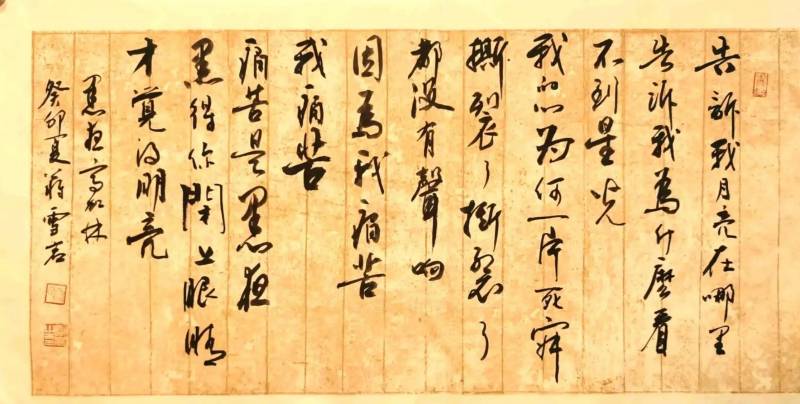 告訴我月亮在哪里
告訴我為什麼看
不到星光
我的心為何一片死寂
撕裂了撕裂了
都没有聲响
因為我痛苦
我痛苦
痛苦是黑夜
黑得你閉上眼睛
才覺得明亮
黑夜高加林
癸卯夏蔣雪岩